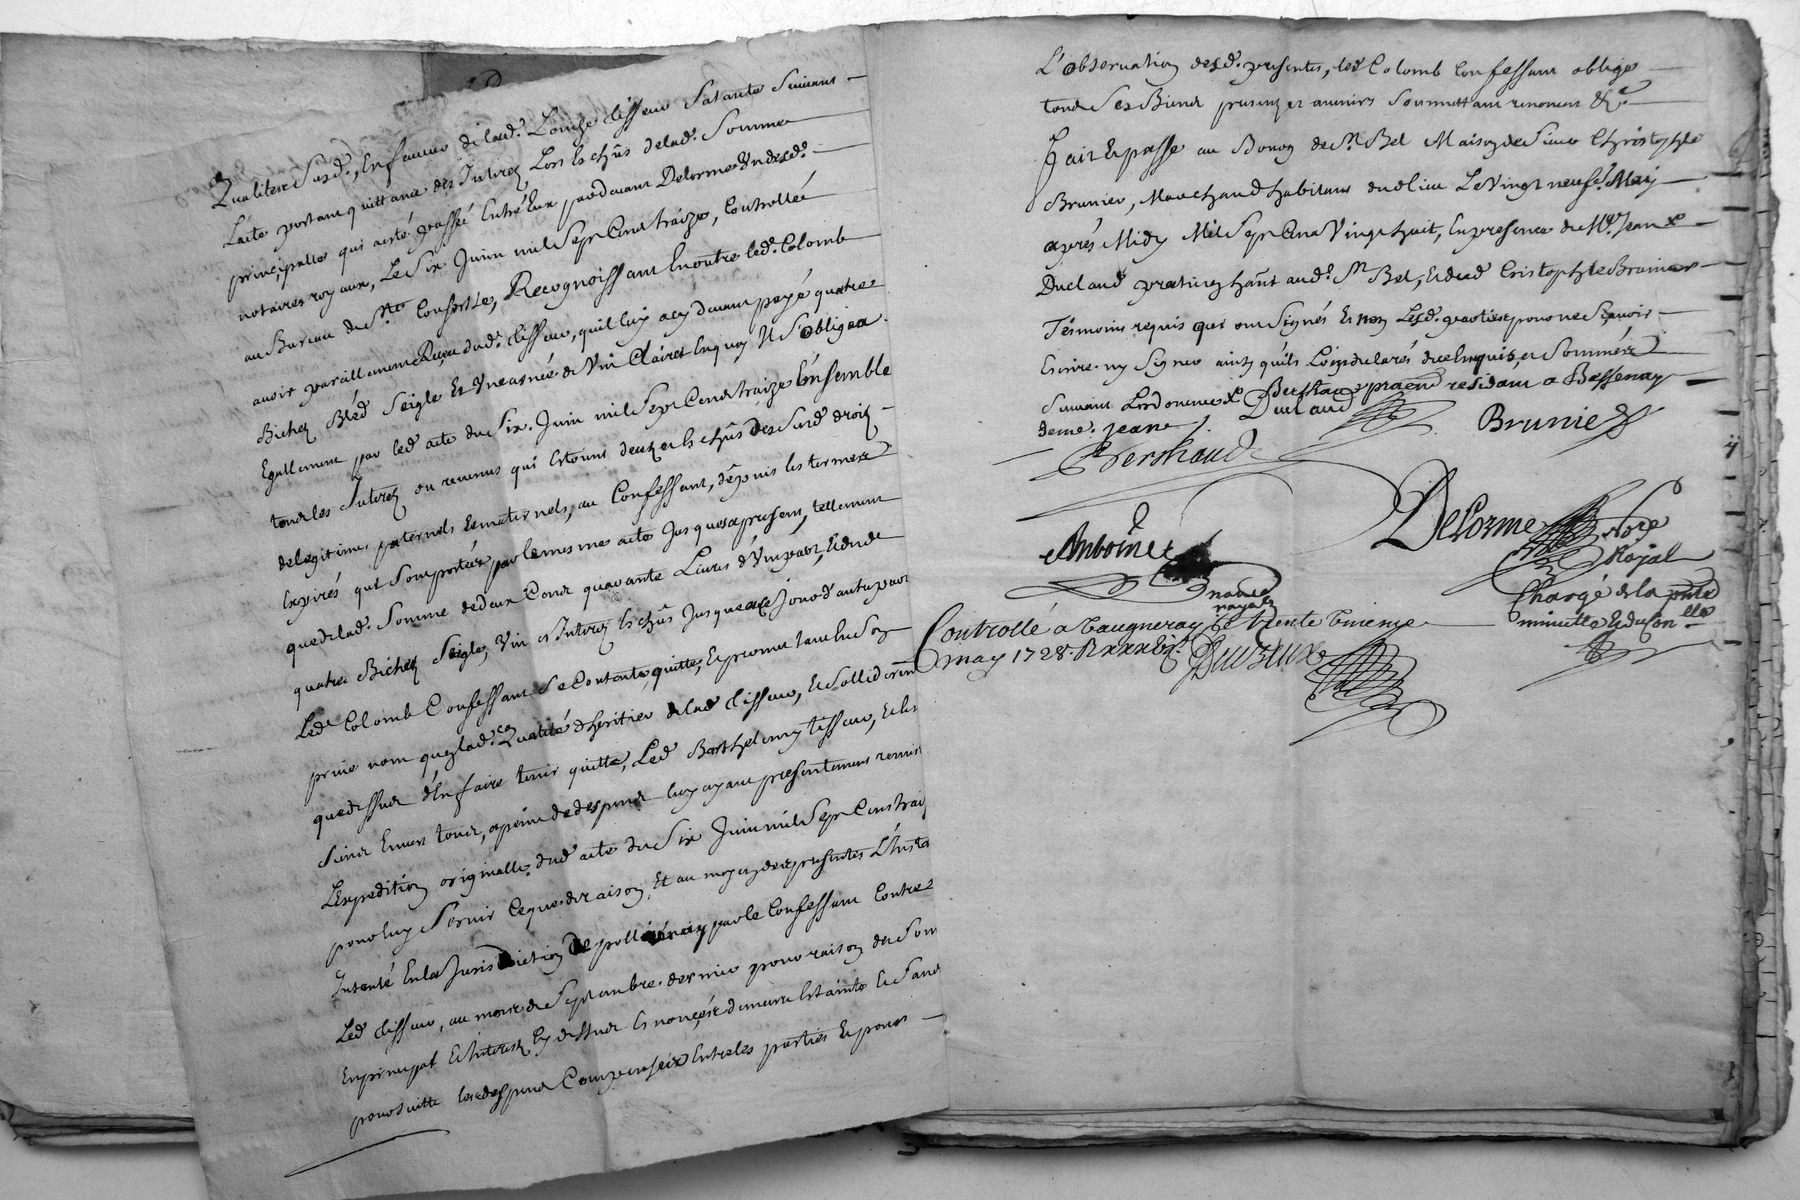 Qualitez Susd., En faveur de lad. Louise Tisseur Sa tante Suivant
L'acte portant quittance des Interez Lors Eschûs de lad. Somme
principalle qui a esté passée Entre Eux pardevant Delorme Un desd.
notaires royaux, Le Six Juin mil Sept Cens traize, Controllée
au Bureau de Recognoissant En outre led. Colomb
avoir pareillement Receu dud. Tisseur, quil luy a cy devant payé quatre
Bichez Bléd Seigle Et Une asnée de Vin Clairet En quoy Il S'obligea
Egallement par led acte du Six Juin mil Sept Cens traize Ensemble
tous les Interez ou revenus qui Estoint deuz et Eschûs des Susd. droiz
de legitimes paternels Et maternels, au Confessant, depuis les termes
Expirés qui Sont portéez par le mesme acte Jusques a present, tellement
que de lad. Somme de deux Cens quarante Livres d'Une part, Et des
quatre Bichez Seigle, Vin et Interez Eschûs Jusque a ce Jour d'autre part
Led. Colomb Confessant Se Contante, quitte, Et promet tant En Son
privé nom qu'En lad. Qualité d'heritier de lad Tisseur, Et Sollidairem
que dessus d'En faire tenir quitte, Led. Barthelemy Tisseur, Et les
Siens Envers tous, a peine de despens luy ayant presentement remis
L'Expedition originalle dud acte du Six Juin mil Sept Cens traize
pour luy Servir Ce que de raison, Et au moyen des presentes L'Insta
Intenté En la Jurisdiction De pollienay par le Confessant Contre
Led. Tisseur, au mois de Septembre dernier pour raison des Som
En principal Et Interez Cy dessus Enoncées demeure Estainte Et Sans
poursuitte les despens Compensés Entre les parties Et pour
L'observation desd. presentes, led. Colomb Confessant oblige
tous Ses Biens presenz et avenirs Soumettant renonçant &c.
Fait Et passé au Bourg de St. Bel Maison de Sieur Christophle
Brunier, Marchand habitant dud lieu Le Vingt neuf May
après Midy Mil Sept Cens Vingt huit, En presence de Me. Jean
Duclaud praticien hãnt aud. St Bel, Et dud Cristophle Brunier
Tesmoins requis qui ont Signés Et non Lesd. parties pour ne Sçavoir
Escrire ny Signer ainsy qu'ils L'ont declarés de ce Enquis, et Sommés
Suivant L'ordonnance Duclaud Berthaud praticien residant a Bessenay
Jeane
Berthaud Brunier
Antoine Delorme Nore
Royal
notaire
royal
Chargé de la presente
minutte
Controllé a Vaugneray le trente Uniesme
may 1728. R